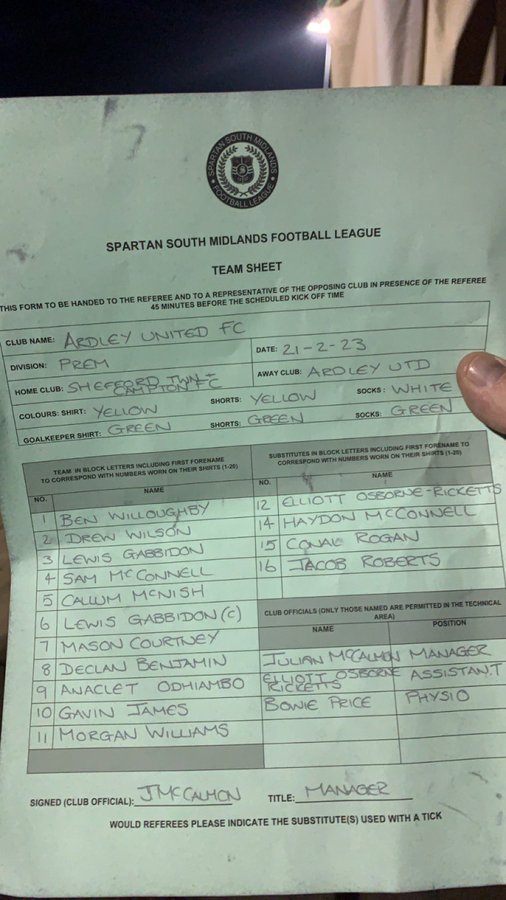 SPARTAN SOUTH MIDLANDS
FOOTBALL LEAGUE
SPARTAN SOUTH MIDLANDS FOOTBALL LEAGUE
TEAM SHEET
THIS FORM TO BE HANDED TO THE REFEREE AND TO A REPRESENTATIVE OF THE OPPOSING CLUB IN PRESENCE OF THE REFEREE
45 MINUTES BEFORE THE SCHEDULED KICK OFF TIME
CLUB NAME: ARDLEY UNITED FC
DIVISION: PREM DATE: 21-2-23
HOME CLUB: SHEFFORD TWN + CAMPTON FC AWAY CLUB: ARDLEY UTD
COLOURS: SHIRT: YELLOW SHORTS: YELLOW SOCKS: WHITE
GOALKEEPER SHIRT: GREEN SHORTS: GREEN SOCKS: GREEN
TEAM IN BLOCK LETTERS INCLUDING FIRST FORENAME
TO CORRESPOND WITH NUMBERS WORN ON THEIR SHIRTS (1-20)
NO. NAME
1 BEN WILLOUGHBY
2 DREW WILSON
3 LEWIS GABBIDON
4 SAM McCONNELL
5 CALLUM McNISH
6 LEWIS GABBIDON (C)
7 MASON COURTNEY
8 DECLAN BENJAMIN
9 ANACLET ODHIAMBO
10 GAVIN JAMES
11 MORGAN WILLIAMS
SUBSTITUTES IN BLOCK LETTERS INCLUDING FIRST FORENAME TO
CORRESPOND WITH NUMBERS WORN ON THEIR SHIRTS (1-20)
NO. NAME
12 ELLIOTT OSBORNE-RICKETTS
14 HAYDON McCONNELL
15 CONAL ROGAN
16 JACOB ROBERTS
CLUB OFFICIALS (ONLY THOSE NAMED ARE PERMITTED IN THE TECHNICAL
AREA)
NAME POSITION
JULIAN McCALMON MANAGER
ELLIOTT OSBORNE RICKETTS ASSISTANT
BOWIE PRICE PHYSIO
SIGNED (CLUB OFFICIAL): J McCALMON TITLE: MANAGER
WOULD REFEREES PLEASE INDICATE THE SUBSTITUTE(S) USED WITH A TICK